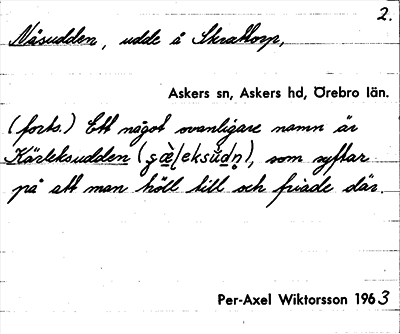 2.
Näsudden, udde å Skrattorp,
Askers sn, Askers hd, Örebro län.
(forts.) Ett något ovanligare namn är
Kärleksudden (                ), som syftar
på att man höll till och friade där.
Per-Axel Wiktorsson 1963